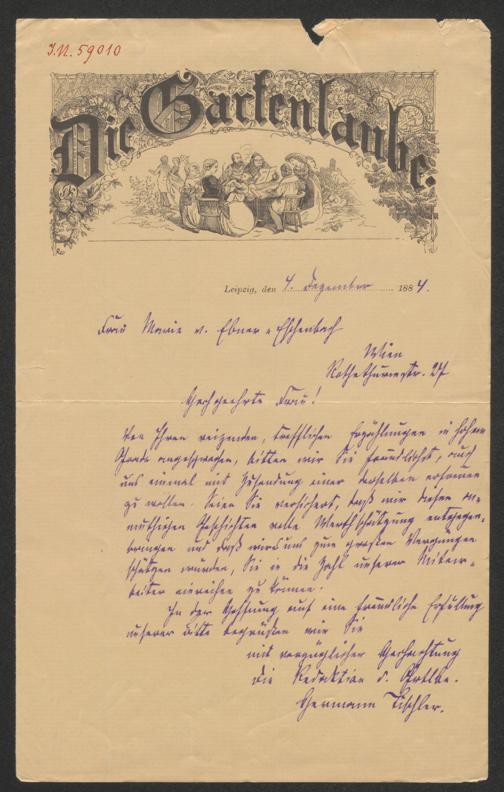 J.N. 59010
Die Gartenlaube.
Leipzig, den 4. Dezember 1884.
Frau Marie v. Ebner-Eschenbach
Wien
Rothethurmstr. 27
Hochgeehrte Frau!
Von Ihren reizenden, trefflichen Erzählungen in hohem
Grade angesprochen, bitten wir Sie freundlichst, auch
uns einmal mit Zusendung einer derselben erfreuen
zu wollen. Seien Sie versichert, daß wir diesen an-
muthigen Geschichten volle Werthschätzung entgegen-
bringen und daß wir's uns zum großen Vergnügen
schätzen würden, Sie in die Zahl unserer Mitar-
beiter einreihen zu können.
In der Hoffnung auf eine freundliche Erfüllung
unserer Bitte begrüßen wir Sie
mit vorzüglicher Hochachtung
die Redaktion d. Grtlbe.
Hermann Tischler.